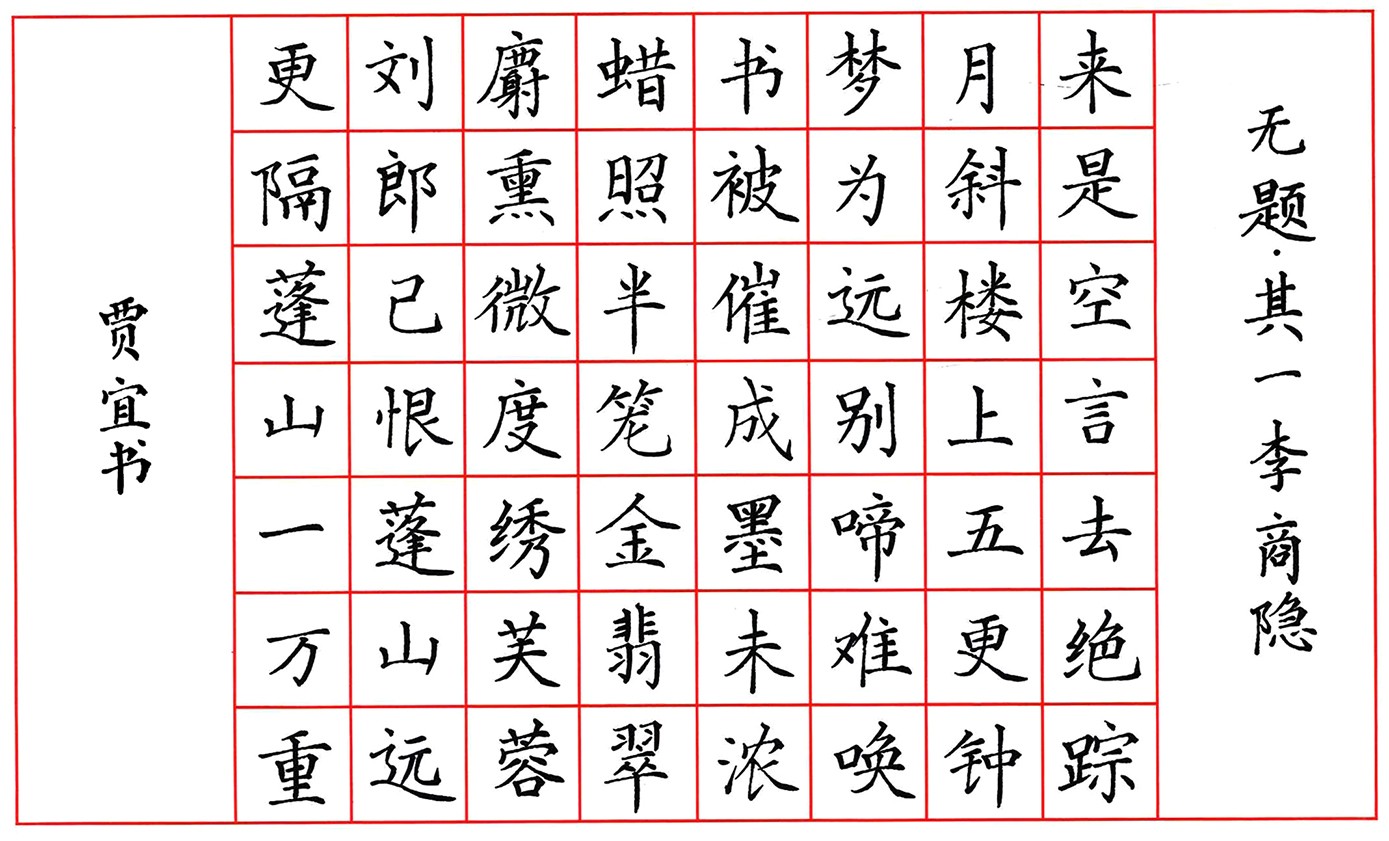 无题·其一 李商隐
来是空言去绝踪
月斜楼上五更钟
梦为远别啼难唤
书被催成墨未浓
蜡照半笼金翡翠
麝熏微度绣芙蓉
刘郎己恨蓬山远
更隔蓬山一万重
贾宜书